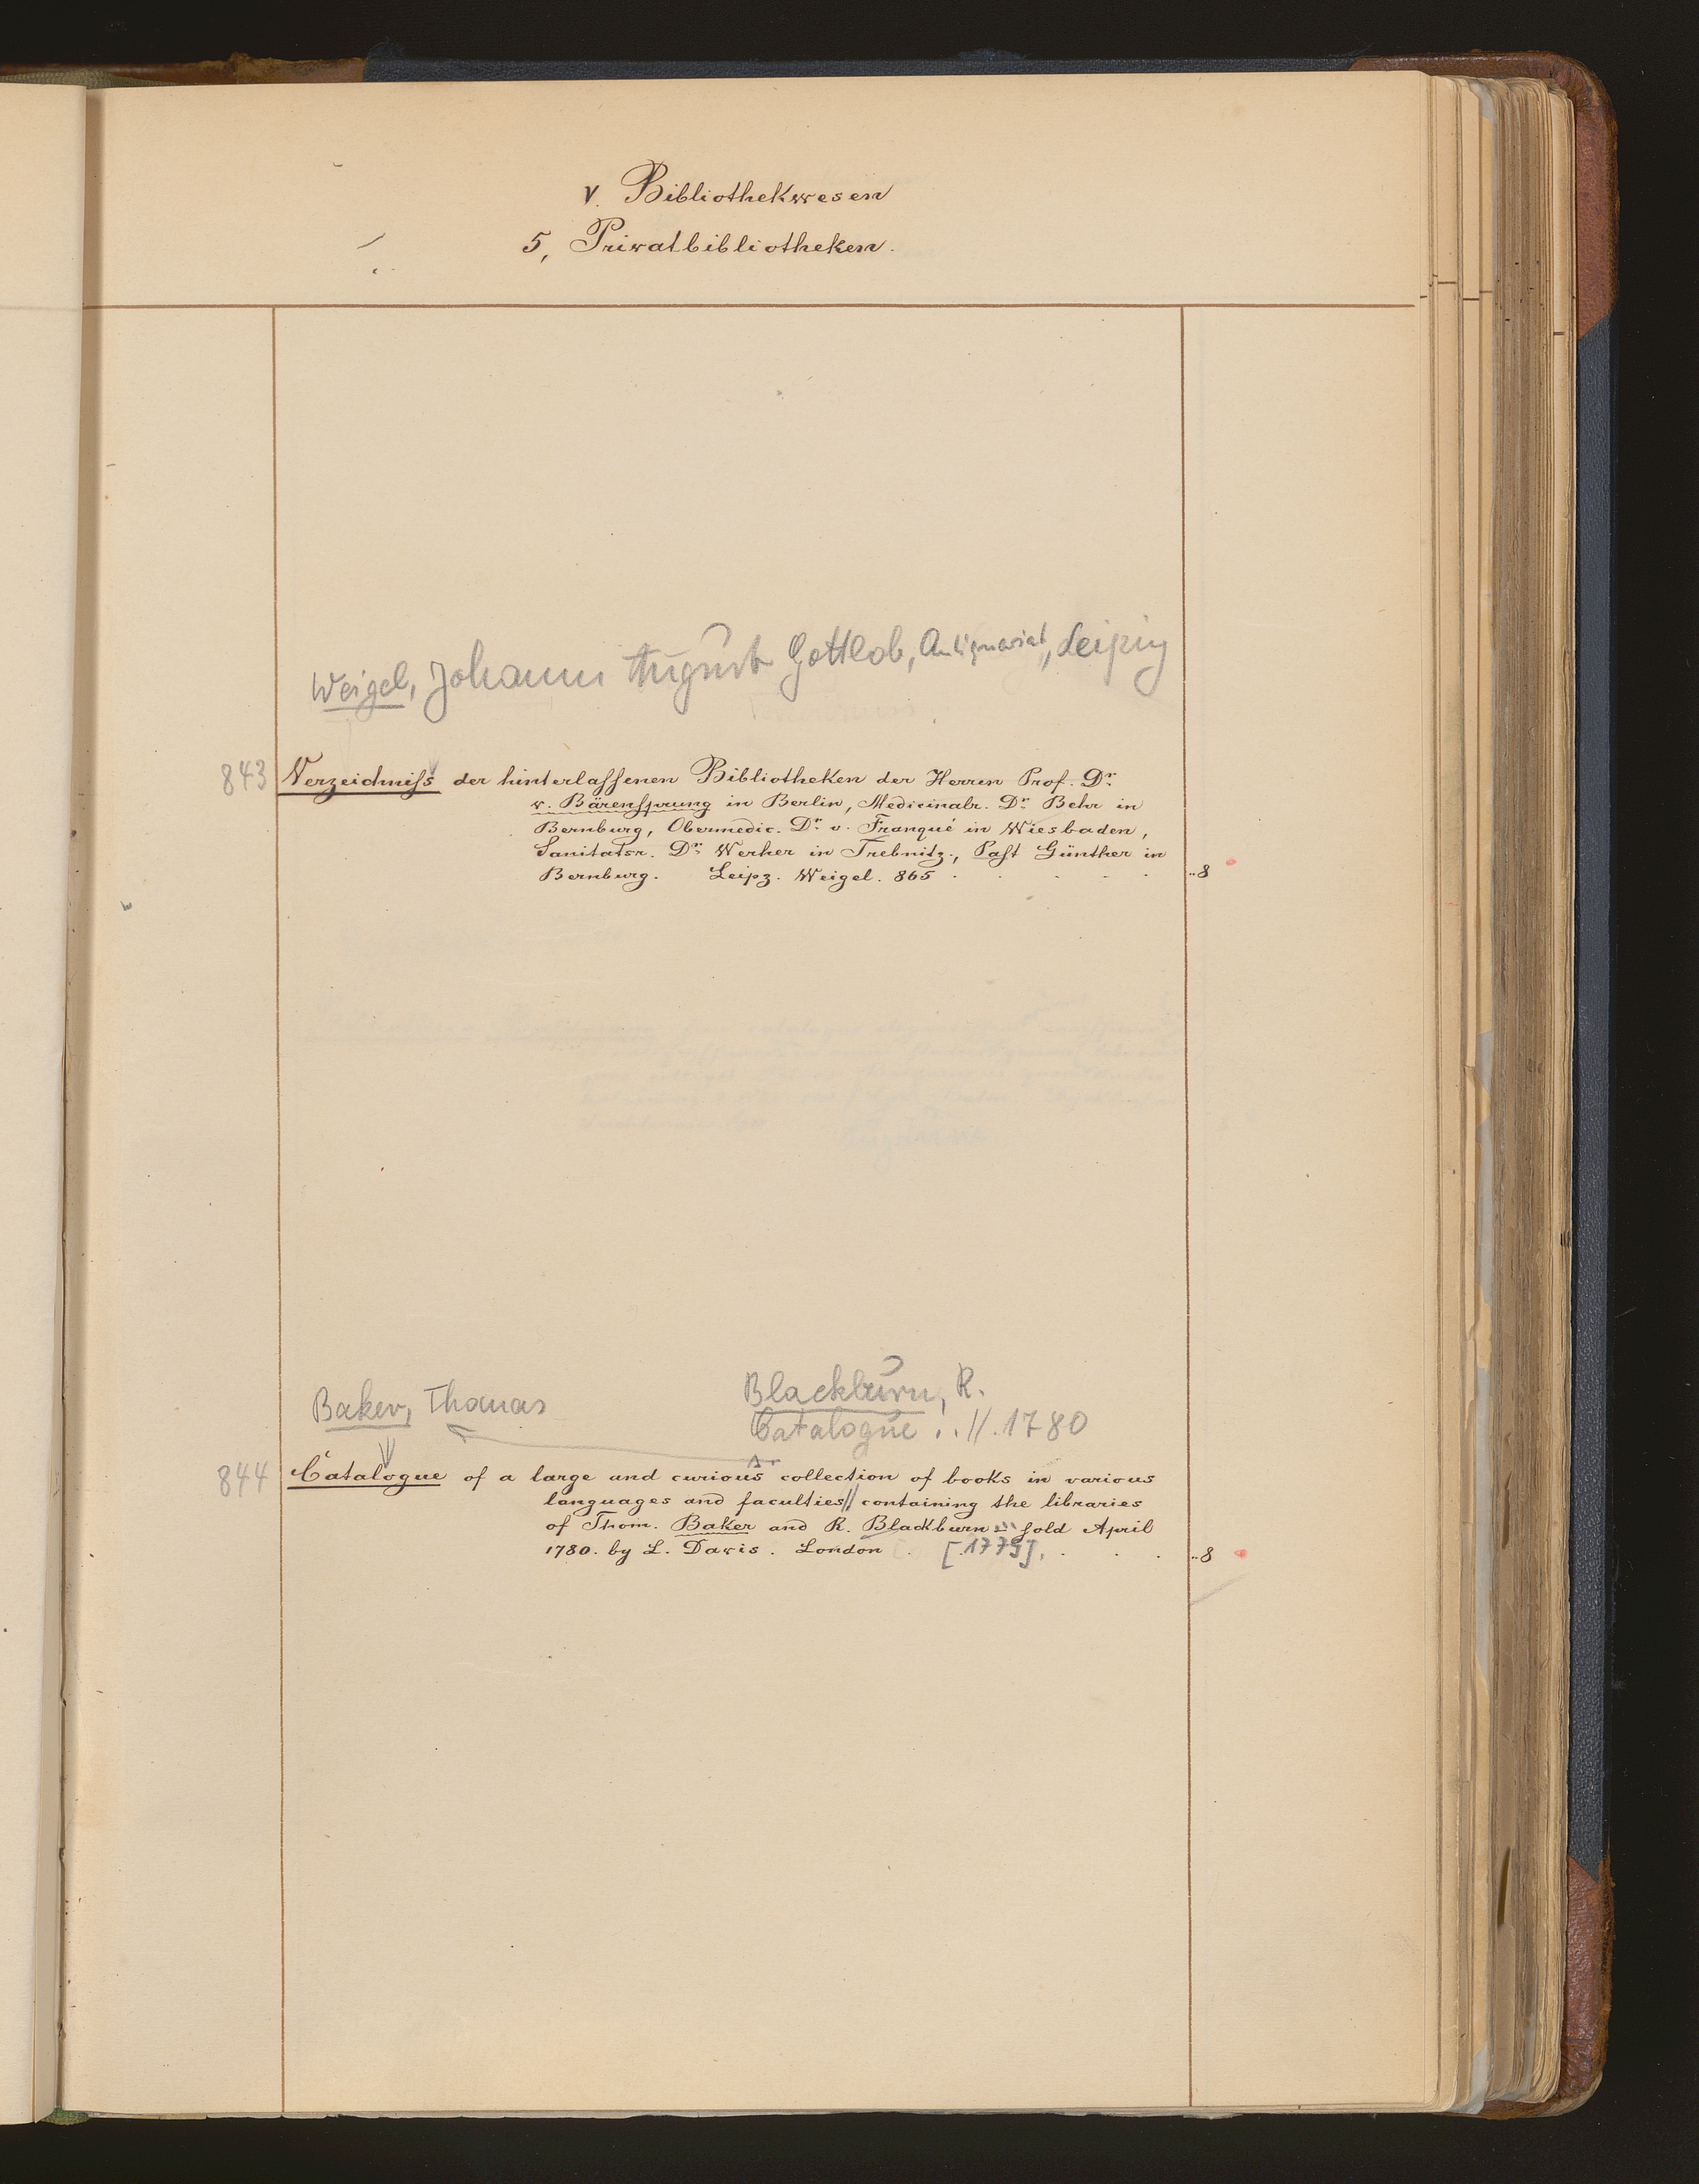 V. Bibliothekwesen
5, Privatbibliotheken.
Weigel, Johann August Gottlob, Antiquariat, Leipzig
843 Verzeichniſs der hinterlaſſenen Bibliotheken der Herren Prof. Dr.
v. Bärenſprung in Berlin, Medicinalr. Dr. Behr in
Bernburg, Obermedic. Dr. v. Franqué in Wiesbaden,
Sanitatsr. Dr. Werher in Trebnitz., Paſt Günther in
Bernburg. Leipz. Weigel. 865 ..8
Baker, Thomas
Blackburn, R.
Catalogue ..//.1780
844 Catalogue of a large and curious collection of books in various
languages and faculties // containing the libraries
of Thom. Baker and R. Blackburn ſold April
1780. by L. Davis. London. [1779]. ..8